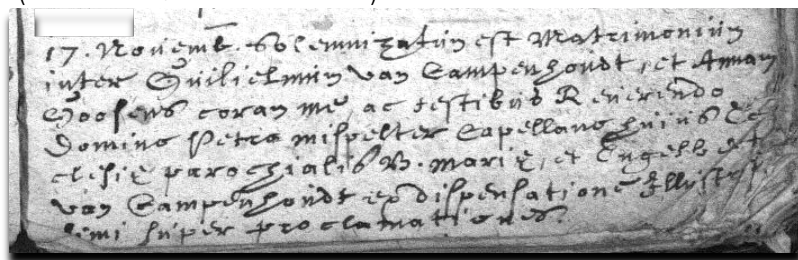 17. Novemb. Solemnizatum est Matrimonium
inter Guilielmum van Campenhoudt, et Annam
Goosens coram me, ac testibus Reverendo
Domino Petro mispelter Capellano huius Ec
clesie parochialis B. Marie, et Engelbert
van Campenhoudt ex dispensatione Illustris
simi super proclamationes.